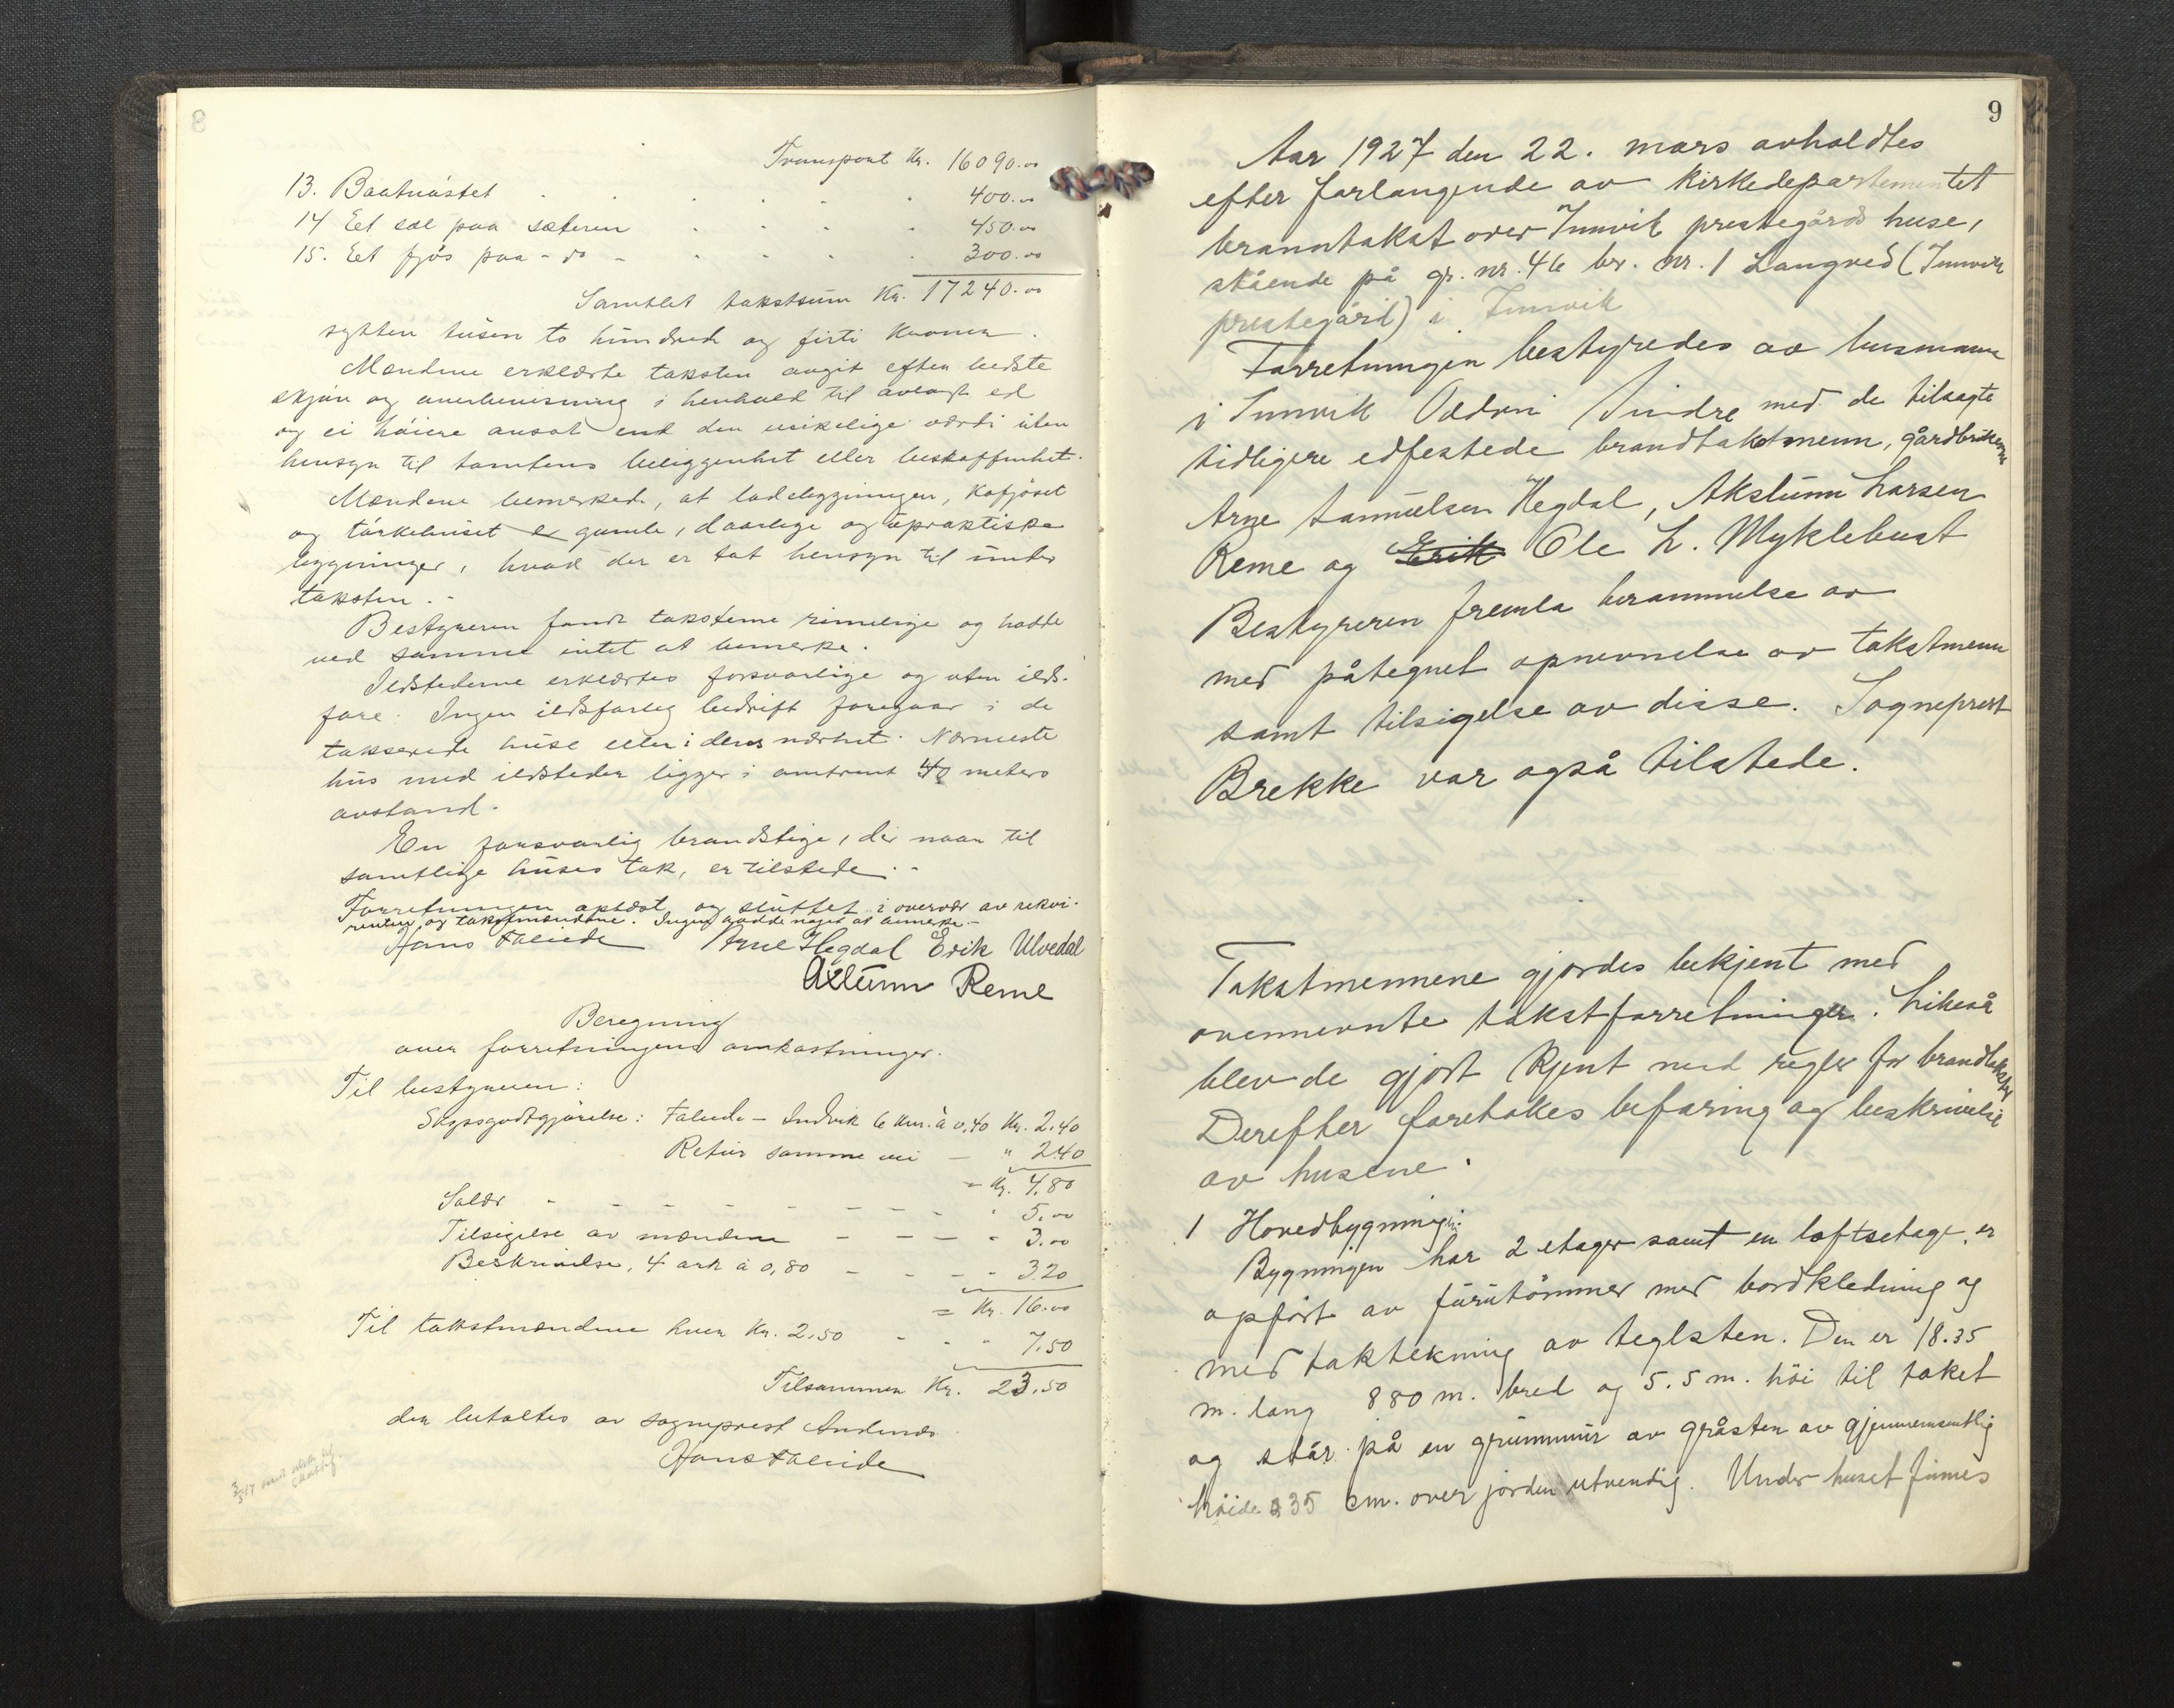 Transport Kr. 16090.00
13. Baatnaustet . . . . . 400.00
14 Eet sæl paa sæteren . . . . 450.00
15. Eet fjös paa - do - . . . . . 300.00
Samblet takstsum Kr. 17240.00
sytten tusen to hundred og firti Kroner.
Mændene erklærte taksten avgit efter bedste
skjön og overbevisning i henhold til avlagt ed
og ei höiere ansat end den virkelige værdi uten
hensyn til tomtens beliggenhet eller beskaffenhet.
Mændene bemerkede, at ladebygningen, Kafjöset
og törkehuset er gamle, daarlige og upraktiske
bygninger, hvad der er tat hensyn til under
taksten. -
Bestyreren fandt taksterne rimelige og hadde
ved samme intet at bemerke.
Ildstederne erklærtes forsvarlige og uten ilds-
fare. Ingen ildsfarlig bedrift foregaar i de
takserede huse eller i deres nærhet. Nærmeste
hus med ildsteder ligger i omtrent 40 meters
avstand.
En forsvarlig brandstige, der naar til
samtlige huses tak, er tilstede. -
Forretningen oplæst og sluttet i overvær av rekvi-
renten og takstmændene. Ingen hadde noget at anmerke. -
Hans Faleide Arne Hegdal Erik Ulvedal
Axtunn Reme
Beregning
over forretningens omkostninger.
Til bestyreren:
Skyssgodtgjörelse: Faleide - Indvik 6 km. à 0,40 Kr. 2.40
Retur samme vei - " 2.40
= Kr. 4.80
Salær - - - - - - - - 5.00
Tilsigelse av mændene - - - - 3.00
Beskrivelse, 4 ark à 0,80 - - - - 3.20
= Kr. 16.00
Til takstmændene hver Kr. 2.50 - - - 7.50
Tilsammen Kr. 23.50
der betaltes av sogneprest
Hans Faleide
9
Aar 1927 den 22. mars avholdtes
efter forlangende av Kirkedepartementet
branntakst over Innvik prestegårds huse,
stående på gr. nr. 46 br. nr. 1 Langved (Innvik
prestegård) i Innvik
Forretningen bestyredes av lensmann
i Innvik Oddvin Sindre med de tilsagte
tidligere edfestede brandtakstmenn, gårdbrukerne
Arne Samuelsen Hegdal, Akstunn Larsen
Reme og Erik Ole L. Myklebust
Bestyreren fremla berammelse av
med påtegnet opnevnelse av takstmenn
samt tilsigelse av disse. Sogneprest
Brekke var også tilstede.
Takstmennene gjordes bekjent med
ovennevnte takstforretninger. Likeså
blev de gjort kjent med regler for brandtakster
Derefter foretakes befaring og beskrivelse
av husene.
1 Hovedbygningen:
Bygningen har 2 etager samt en loftsetage, er
opfört av furutömmer med bordkledning og
med taktekning av teglsten. Den er 18.35
m. lang 880 m. bred og 5.5 m. höi til taket
og står på en grunnmur av gråsten av gjennemsnitlig
höide 35 cm. over jorden utvendig. Under huset finnes